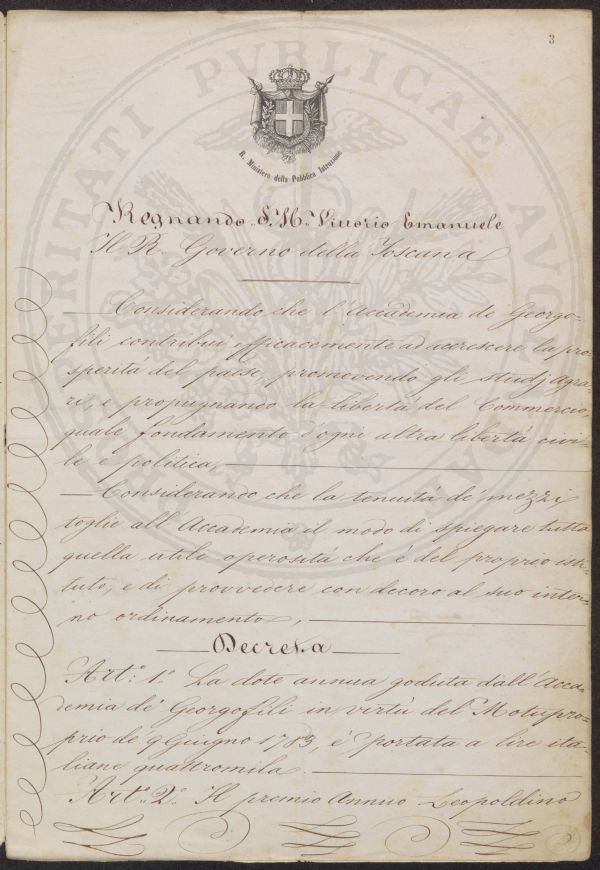 3
PROSPERITATI PUBLICAE AUGENDAE
R. Ministero della Pubblica Istruzione
Regnando S. M. Vittorio Emanuele
Il R. Governo della Toscana
Considerando che l'Accademia de' Georgo-
fili contribuì efficacemente ad accrescere la pro-
sperità del paese, promovendo gli studj agra-
ri, e propugnando la libertà del Commercio,
quale fondamento d'ogni altra libertà civi-
le e politica,
Considerando che la tenuità de' mezzi
toglie all'Accademia il modo di spiegare tutta
quella utile operosità che è del proprio isti-
tuto, e di provvedere con decoro al suo inter-
no ordinamento,
Decreta
Art.° 1.° La dote annua goduta dall'Acca-
demia de' Georgofili in virtù del Motupro-
prio de' 9 Giugno 1783, è portata a lire ita-
liane quattromila.
Art.° 2.° Il premio Annuo Leopoldino